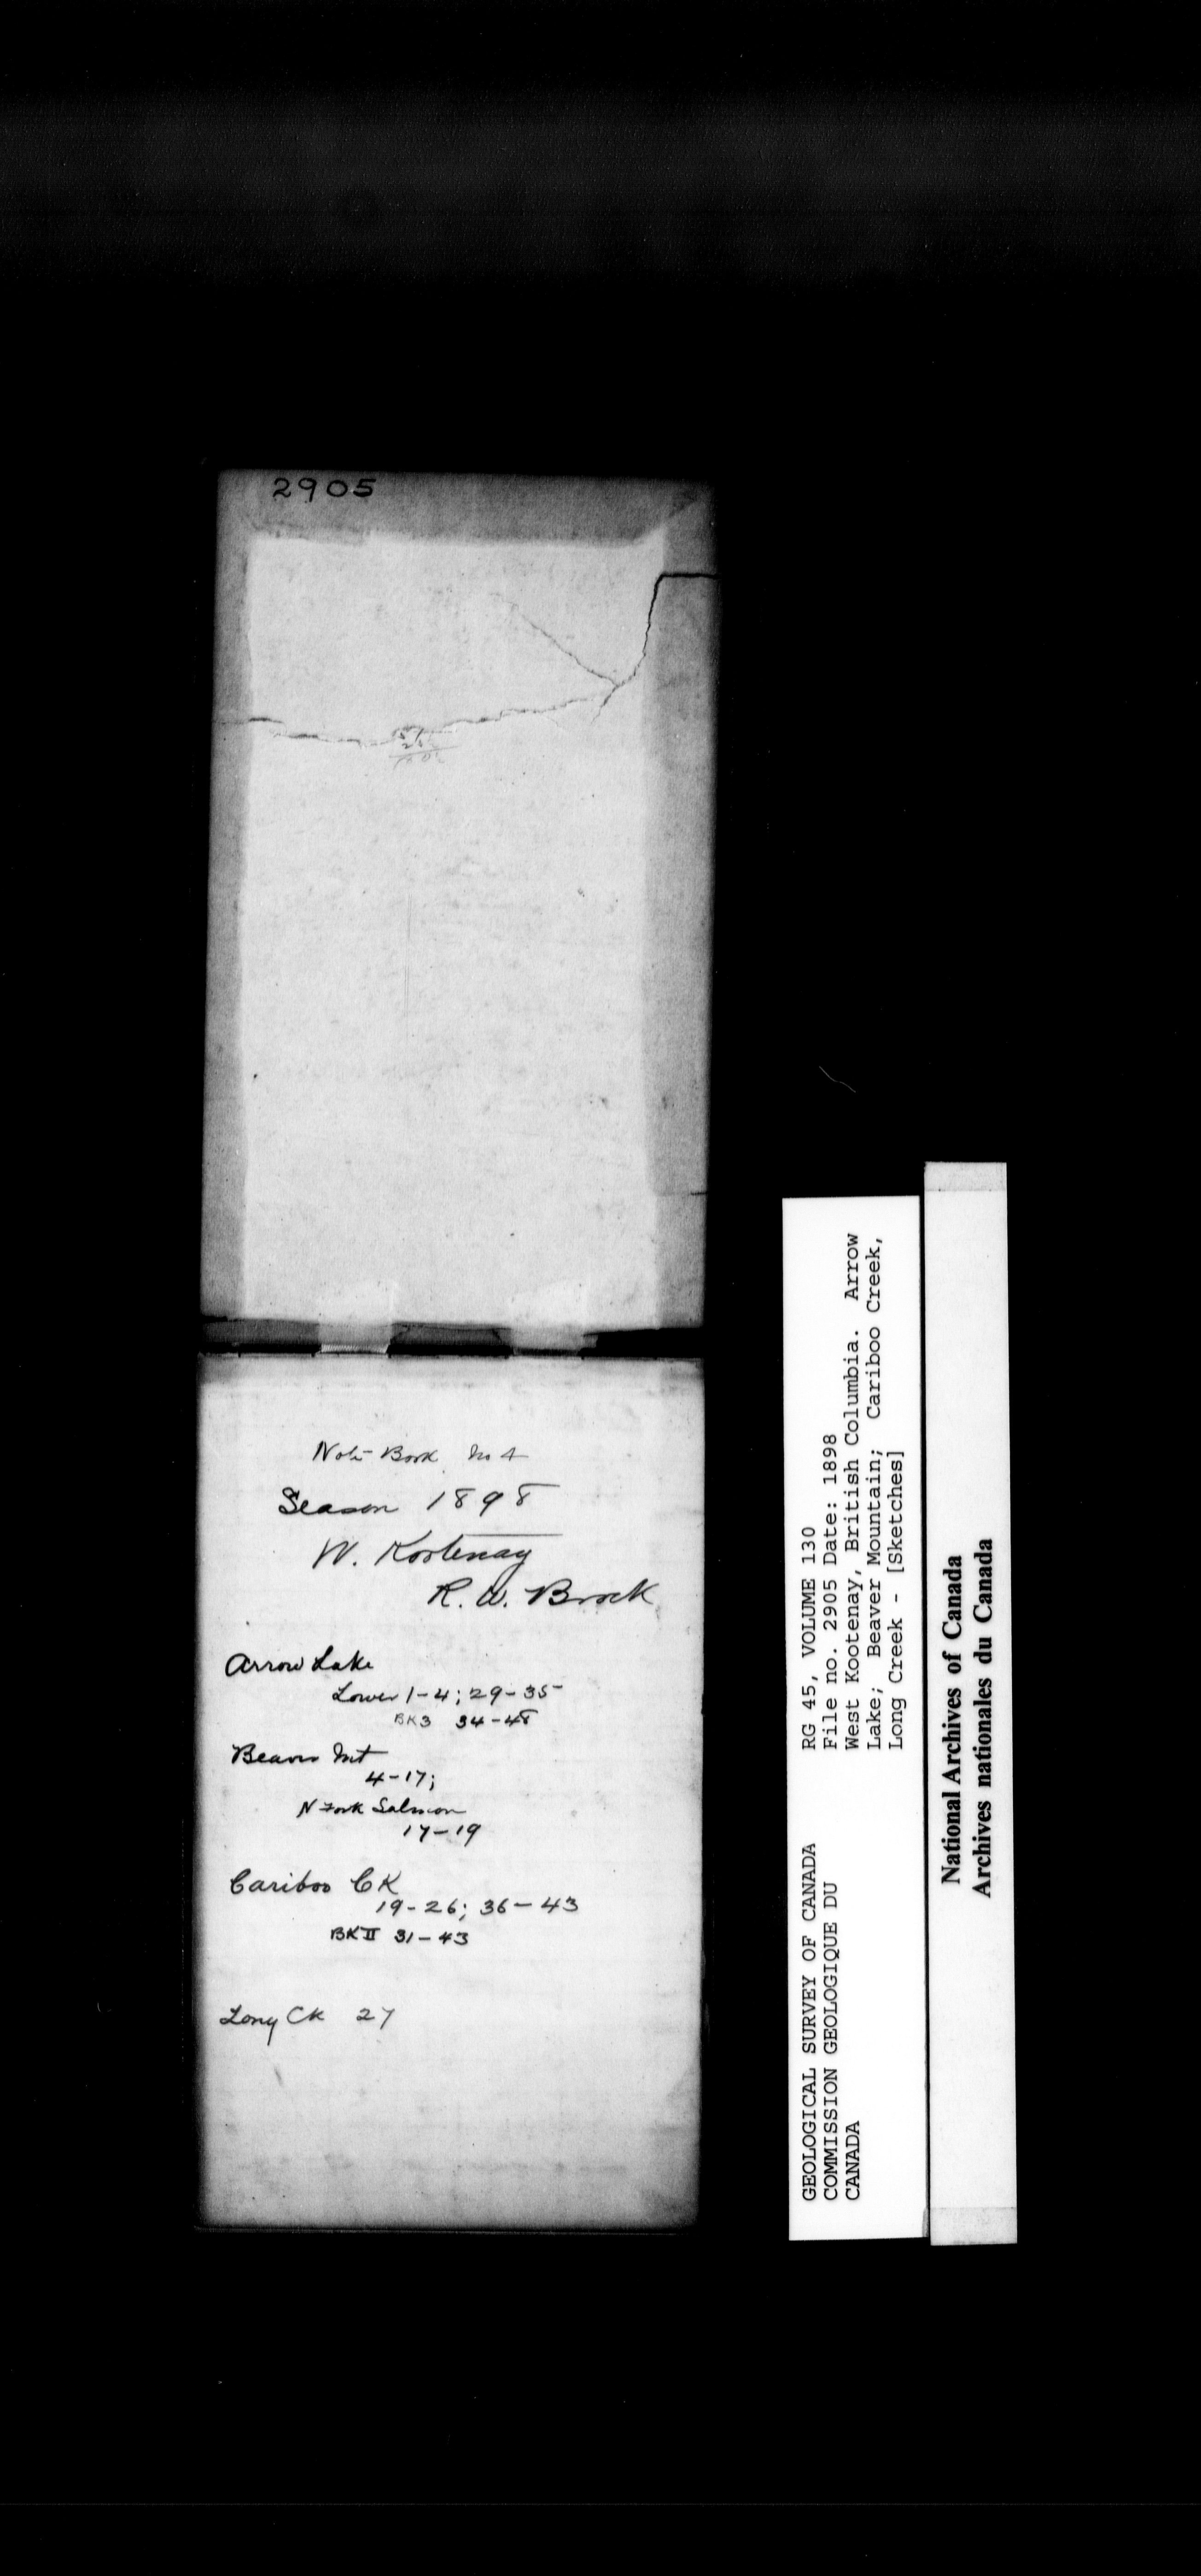 2905
Note Book No 4
Season 1898
W. Kootenay
R. W. Brock
Arrow Lake
Lower 1-4; 29-35
BK3 34-48
Beaver Mt
4-17;
N Fork Salmon
17-19
Cariboo CK
19-26; 36-43
BK II 31-43
Long CK 27
GEOLOGICAL SURVEY OF CANADA
COMMISSION GEOLOGIQUE DU
CANADA
RG 45, VOLUME 130
File no. 2905 Date: 1898
West Kootenay, British Columbia. Arrow
Lake; Beaver Mountain; Cariboo Creek,
Long Creek - [Sketches]
National Archives of Canada
Archives nationales du Canada